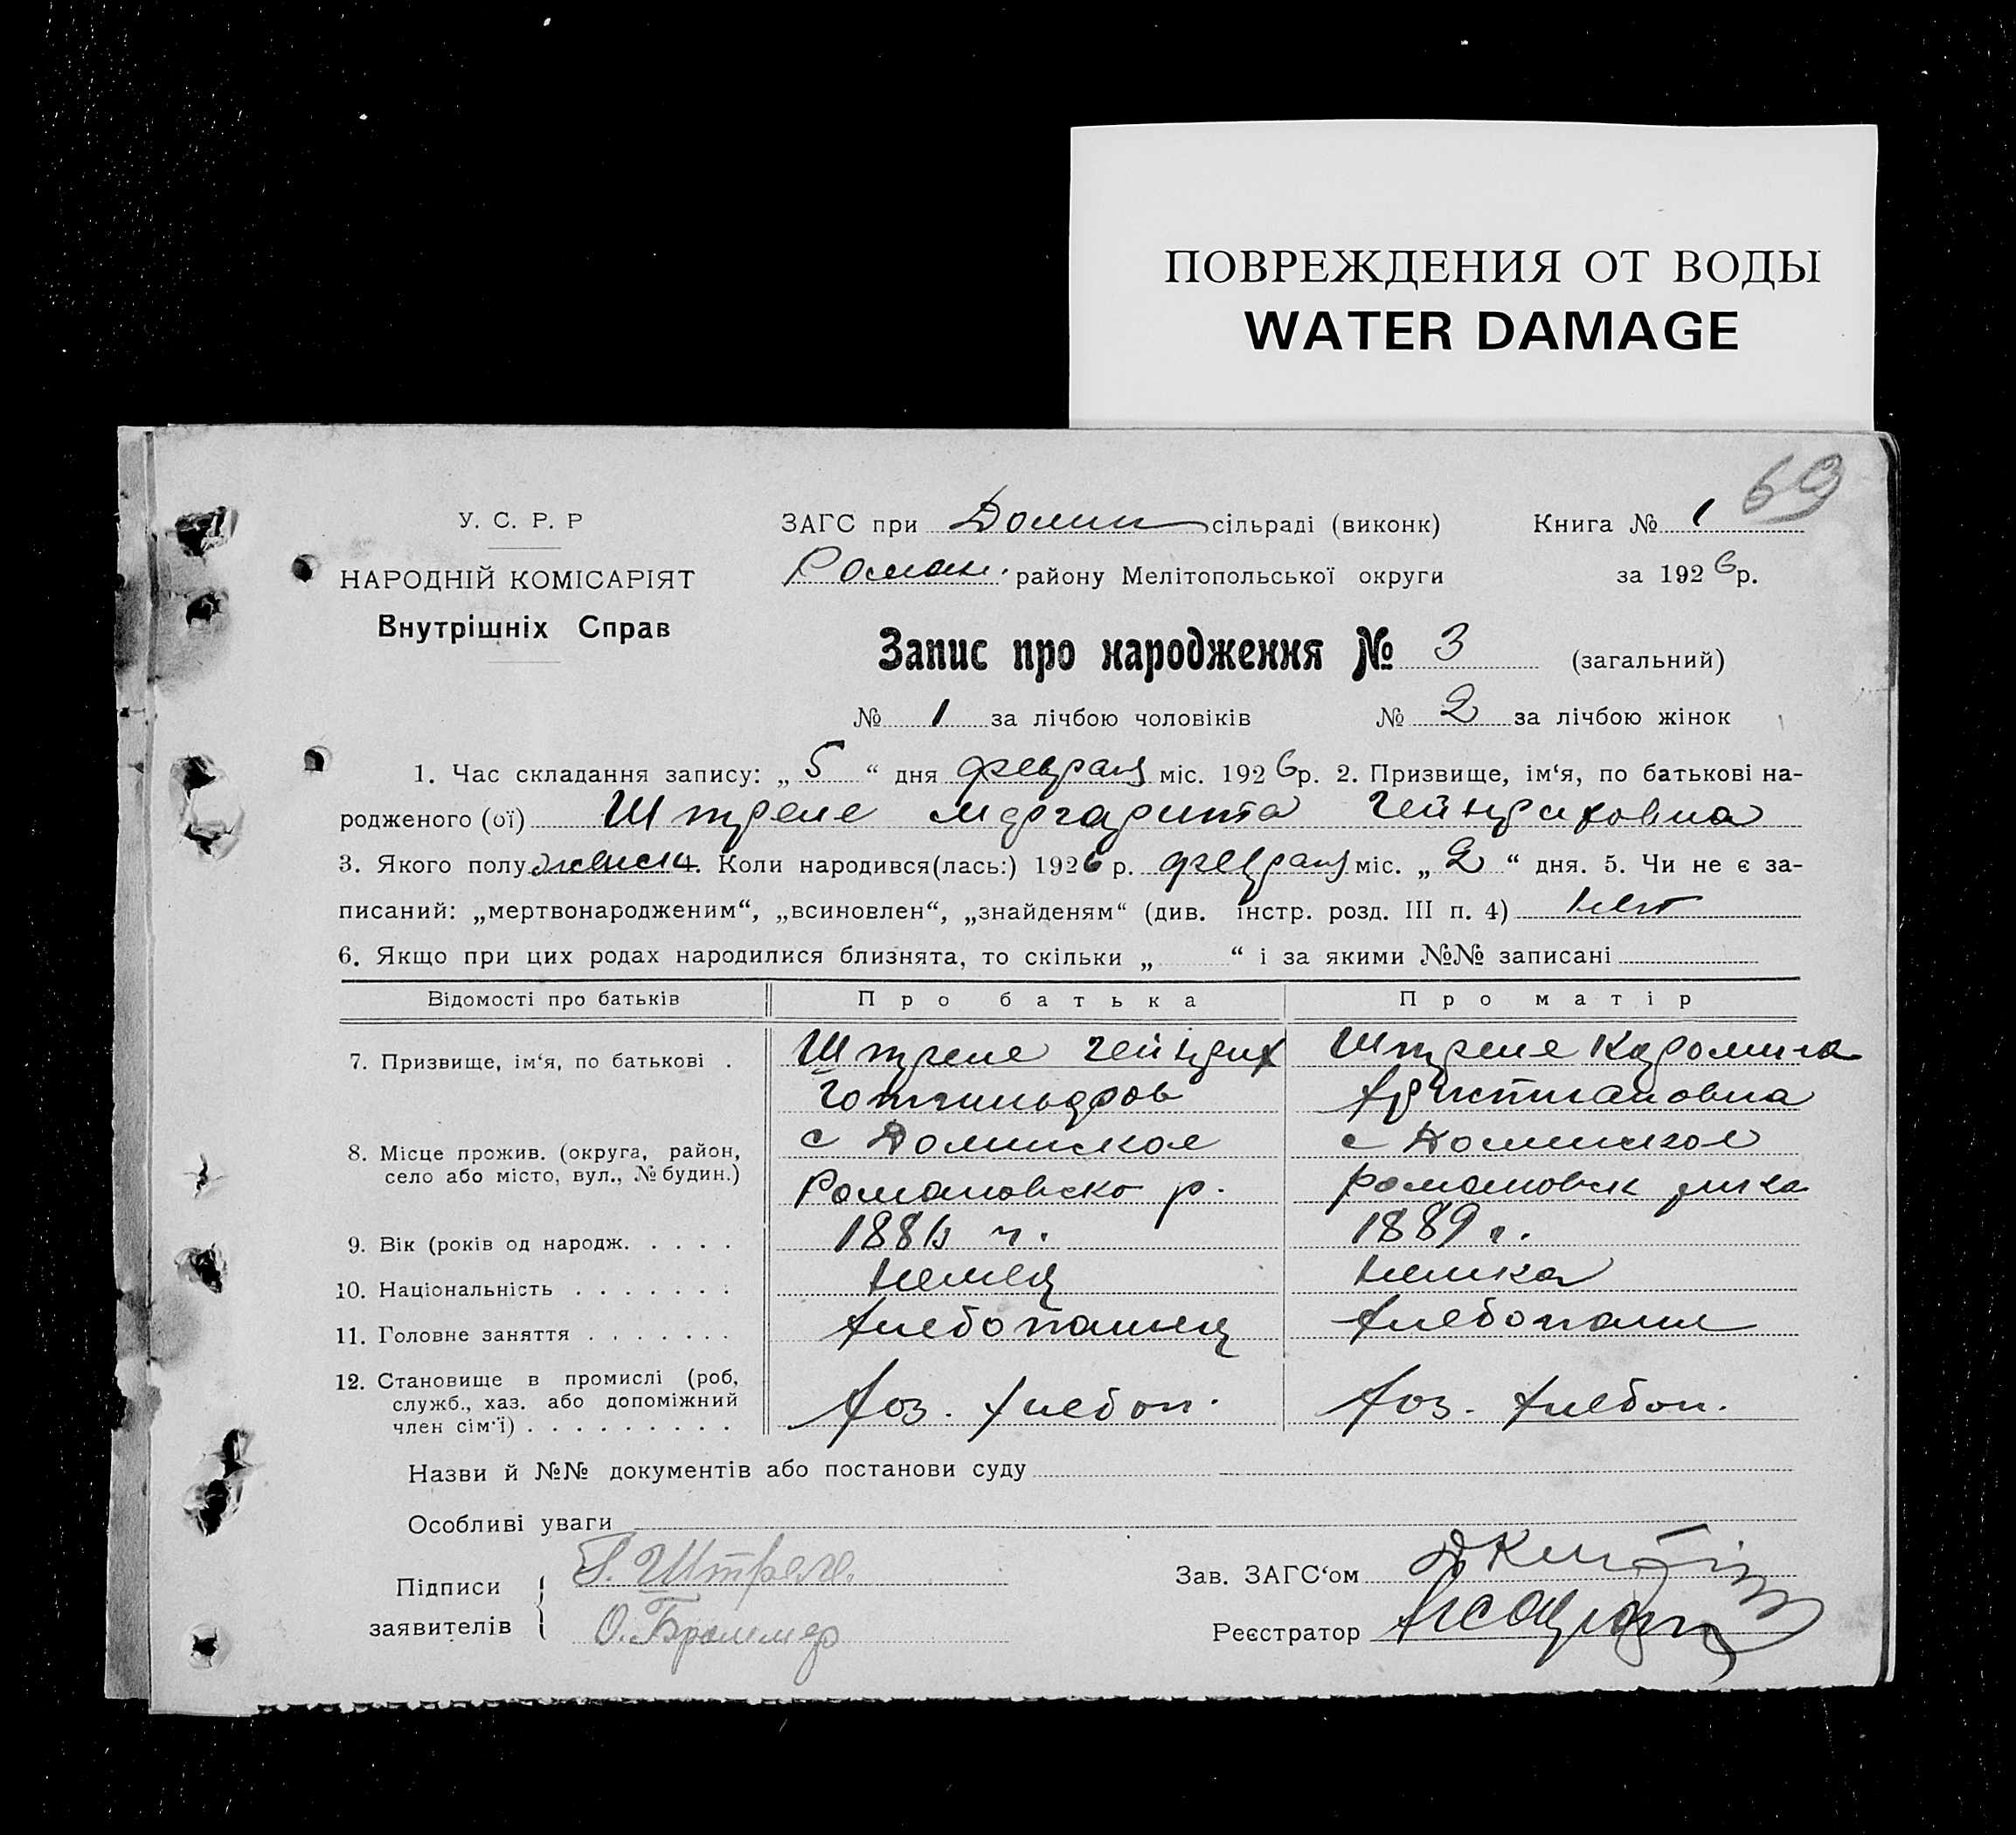 ПОВРЕЖДЕНИЯ ОТ ВОДЫ
WATER DAMAGE
69
У. С. Р. Р
НАРОДНІЙ КОМІСАРІЯТ
Внутрішніх Справ
ЗАГС при Долин сільраді (виконк) Книга № 1
Роман. району Мелітопольської округи за 1926р.
Запис про народження № 3 (загальний)
№ 1 за лічбою чоловіків № 2 за лічбою жінок
1. Час складання запису: „ 5 “ дня февраля міс. 1926р. 2. Призвище, ім‘я, по батькові на-
родженого (ої) Штреле Маргарита Гейнриховна
3. Якого полу женск 4. Коли народився(лась:) 1926 р. февраля міс. „ 2 “ дня. 5. Чи не є за-
писаний: „мертвонародженим“, „всиновлен“, „знайденям“ (див. інстр. розд. III п. 4) нет
6. Якщо при цих родах народилися близнята, то скільки „ “ і за якими №№ записані
Відомості про батьків Про батька Про матір
7. Призвище, ім‘я, по батькові . Штреле Гейнрих Штреле Каролина
Готлильдров Христиановна
8. Місце прожив. (округа, район, село або місто, вул., № будин.) с Долинское с Долинское
Романовско р. Романовск
9. Вік (років од народж. . . . . 188 г. 1889 г.
10. Національність . . . . . . . немец немка
11. Головне заняття . . . . . . . хлебопашец хлебопаш
12. Становище в промислі (роб,
служб., хаз. або допоміжний
член сім‘ї) . . . . . . . . . хоз. хлебоп. хоз. хлебоп.
Назви й №№ документів або постанови суду
Особливі уваги
Підписи заявителів Г. Штреле.
О. Браммер
Зав. ЗАГС‘ом
Реєстратор